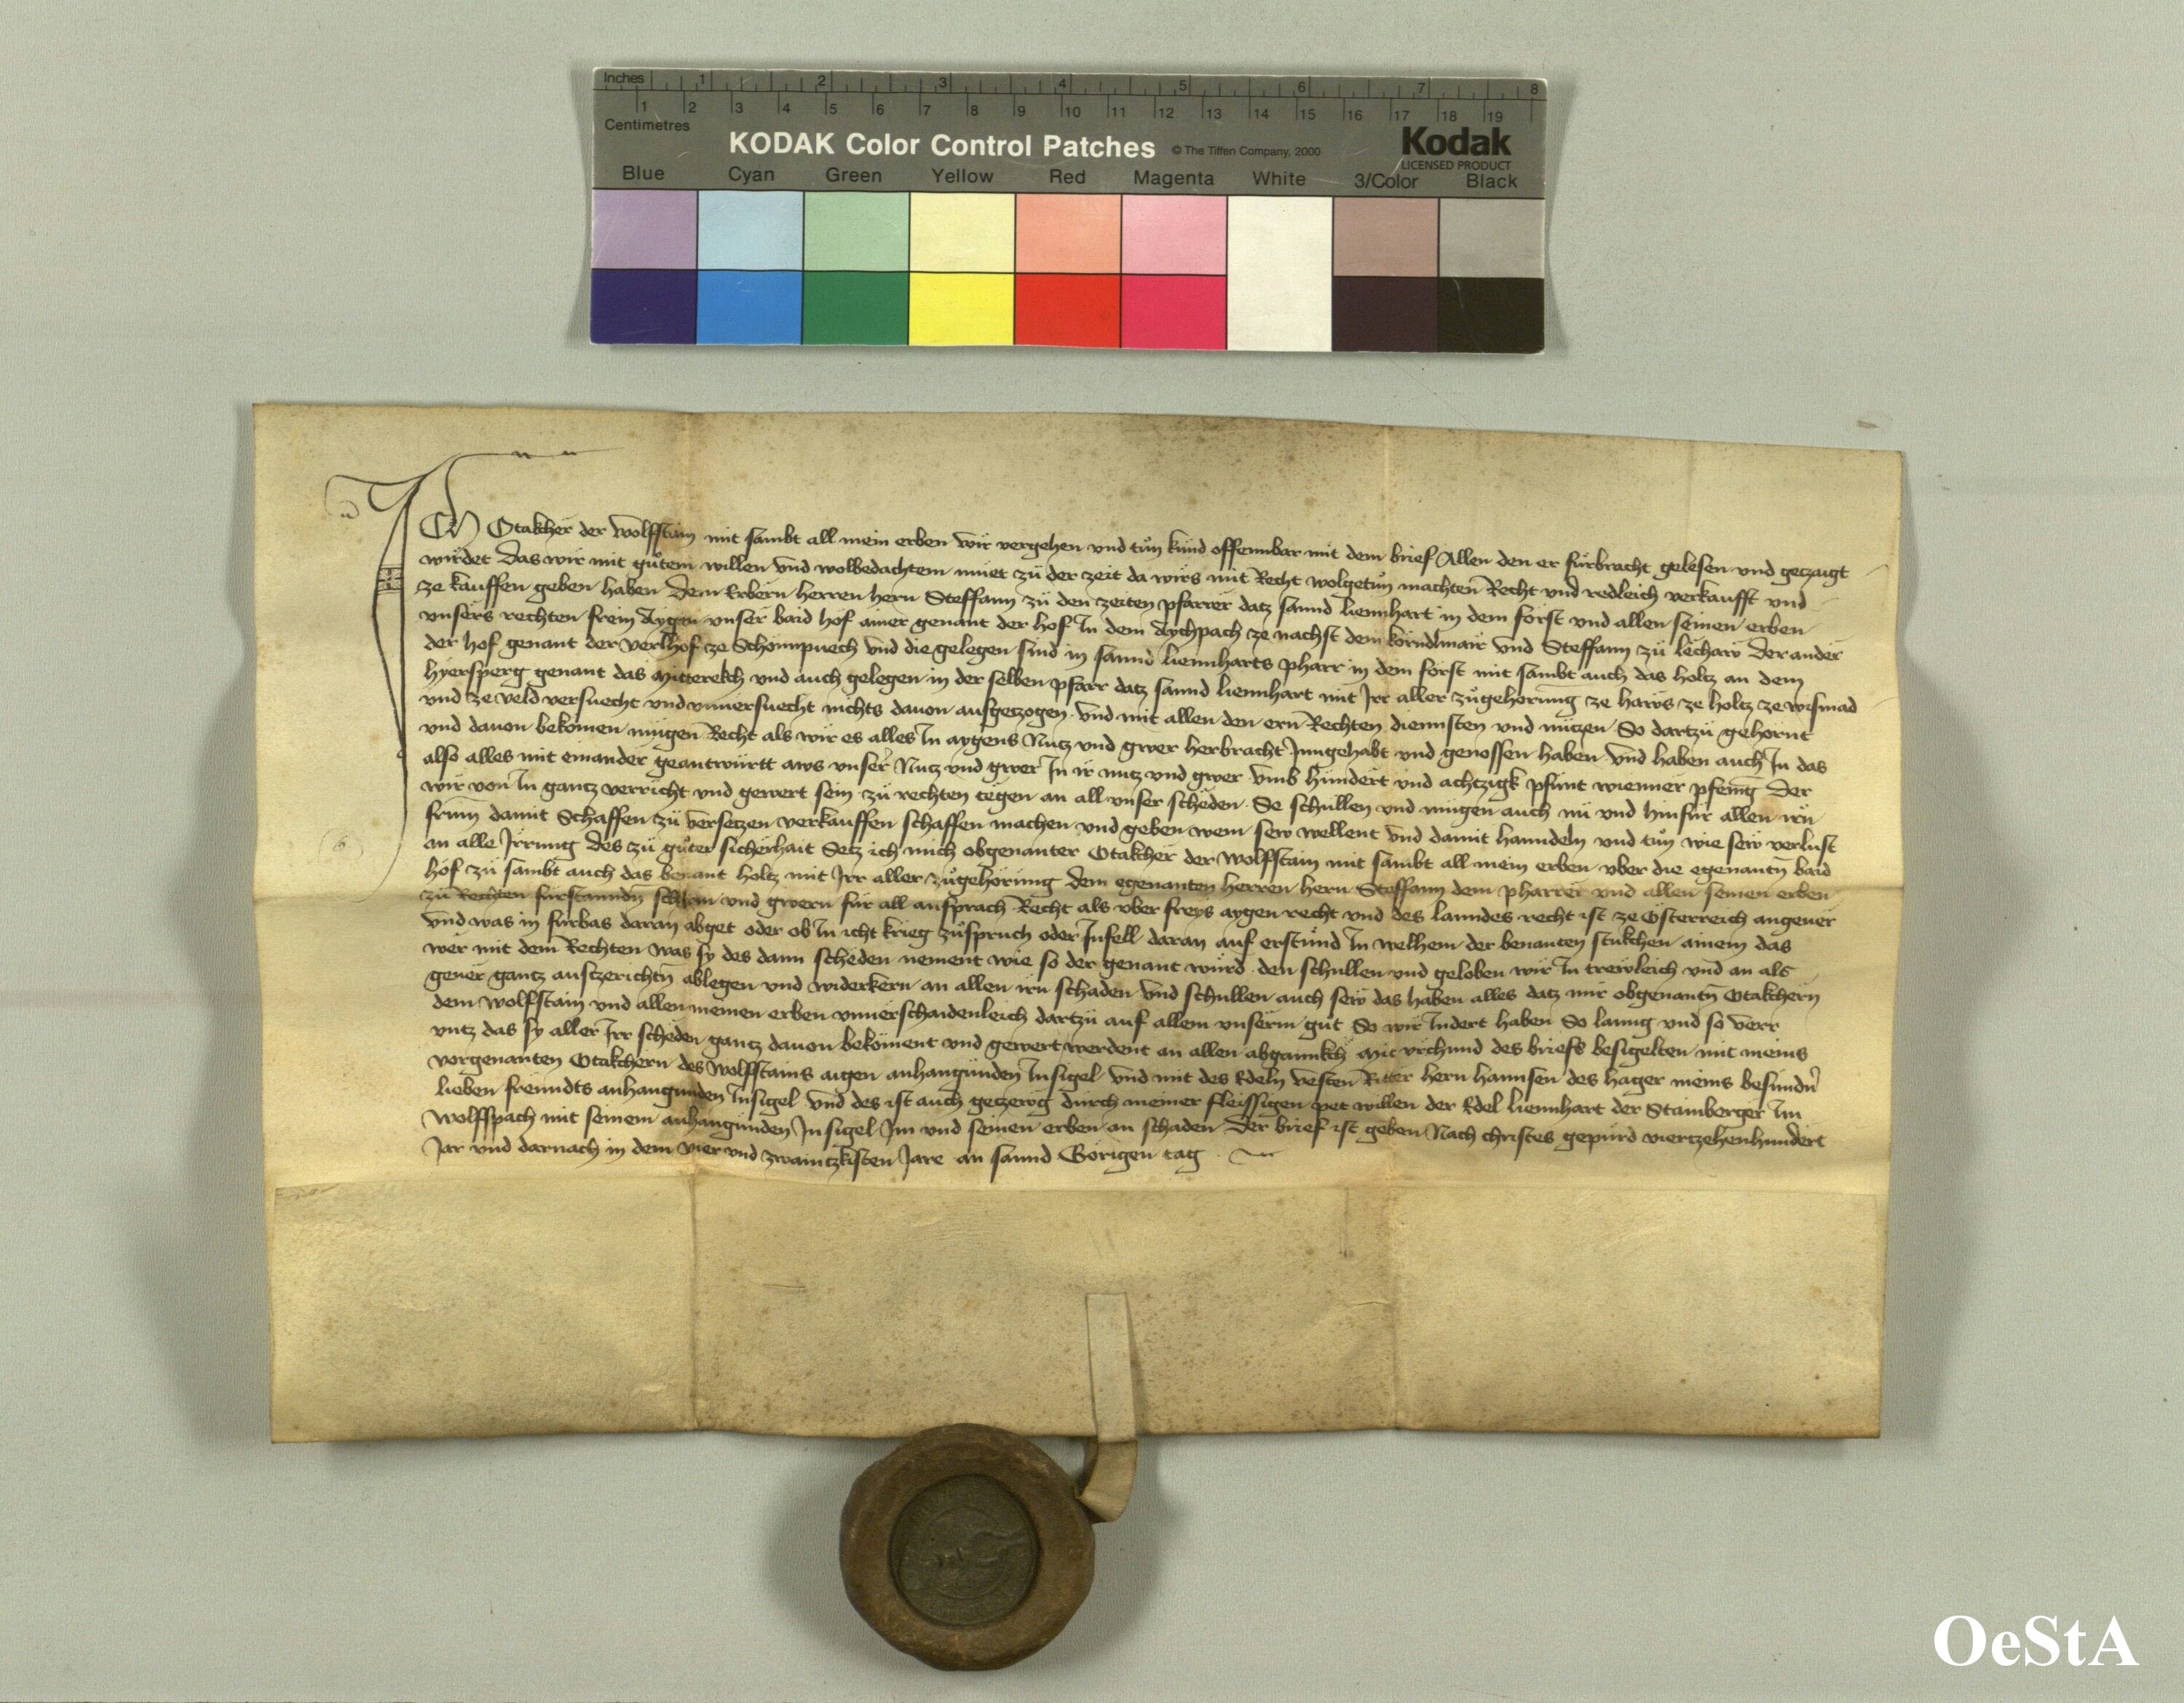 Inches 1 2 3 4 5 6 7 8
1 2 3 4 5 6 7 8 9 10 11 12 13 14 15 16 17 18 19
Centimetres
KODAK Color Control Patches © The Tiffen Company, 2000 Kodak
LICENSED PRODUCT
Blue Cyan Green Yellow Red Magenta White 3/Color Black
Ich Otakcher der Wolffstain mit sambt all mein erben wir vergehen und tůn kund offennbar mit dem brief Allen den er fürbracht gelesen und getzaigt
wirdet Das wir mit gůtem willen vnd wolbedachtem muet zů der zeit da wirs mit Recht wolgetůn machten Recht und redleich verkaufft und
ze kauffen geben haben Dem Erbern herren hern Steffann zů den zeiten pfarrer datz sannd Liennhart in dem forst und allen seinen erben
vnsers rechten frein Aygen vnser baid hof ainer genant der hof In dem Aychpach ze nachst dem körndlmair und Steffann zů lechaw Der ander
der hof genant der Verlhof ze Schönnpuech vnd die gelegen sind in sannd Liennharts pharr in dem forst mit sambt auch das holtz an dem
hyersperg genant das Mitterekch und auch gelegen in der selben pfarr datz sannd Liennhart mit Irr aller zůgehorung ze haws ze holtz ze wismad
und ze veld versuecht und vnuersuecht nichts dauon ausgetzogen vnd mit allen den ern Rechten diennsten und nützen So dartzů gehörnt
und dauon bekömen mügen Recht als wir es alles In aygens Nutz und gwer herbracht Inngehabt und genossen haben vnd haben auch In das
also alles mit einander geantwürtt aws vnser Nutz und gwer In ir nutz und gwer vmb hundert und achtzigk pfünt wienner pfening Der
wir von In gantz verricht und gewert sein zů rechten tegen an all vnser scheden Se schullen und mügen auch nü und hinfür allen irn
frum damit Schaffen zů versetzen verkauffen schaffen machen und geben wem sew wellent vnd damit hanndeln und tůn wie sew verlust
an alle Irrung Des zů gůter sicherhait Setz ich mich obgenanter Otakcher der Wolffstain mit sambt all mein erben vber die egenantn baid
hof zů sambt auch das benant holtz mit Irr aller zůgehorung dem egenanten herren hern Steffann dem pharrer und allen seinen erben
zů Rechten fürstanndn scherm und gwern für all ansprach Recht als vber freys aygen recht und des lanndes recht ist ze Österreich angeuer
vnd was in fürbas daran abget oder ob In icht krieg zůspruch oder Infell daran auf erstünd In welhem der benanten stukchen ainem das
wer mit dem Rechten was sy des dann scheden nement wie so der genant würd den schullen und geloben wir In trewleich und an als
geuer gantz ausczerichtn ablegen und widerkern an allen irn schaden vnd schullen auch sew das haben alles datz mir obgenantn Otakchern
dem Wolffstain und allen meinen erben vnuerschaidenleich dartzů auf allem vnserm gůt So wir Indert haben So lanng und so verr
vntz das sy aller Irr scheden gantz dauon bekoment und gewert werdent an allen abgannkch Mit vrchund des briefs besigelten mit meins
vorgenanten Otakchern des Wolffstains aigen anhangunden Insigel vnd mit des Edeln vesten Ritter hern hannsen des hager meins besundn
lieben freunndts anhangunden Insigel vnd des ist auch getzewg durch meiner fleissigen pet willen der Edel Liennhart der Stainberger Im
Wolffspach mit seinem anhangunden Insigel Im und seinen erben an schaden Der brief ist geben Nach christes gepurd viertzehenhundert
Jar und darnach in dem vier und zwaintzkisten Jare an sannd Görigen tag
OeStA